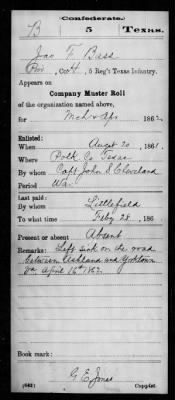 Confederate.
B 5 Texas.
Jas. T. Bass
Pvt, Co. H, 5 Reg't Texas Infantry.
Appears on
Company Muster Roll
of the organization named above,
for Mch & Apr, 1862.
Enlisted:
When August 20, 1861.
Where Polk Co. Texas
By whom Capt John S Cleveland
Period War
Last paid:
By whom Littlefield
To what time Feby 28, 186
Present or absent Absent
Remarks: Left sick on the road
between Ashland and Yorktown
Va. April 16th 1862.
Book mark:
G. E. Jones
(642) Copyist.